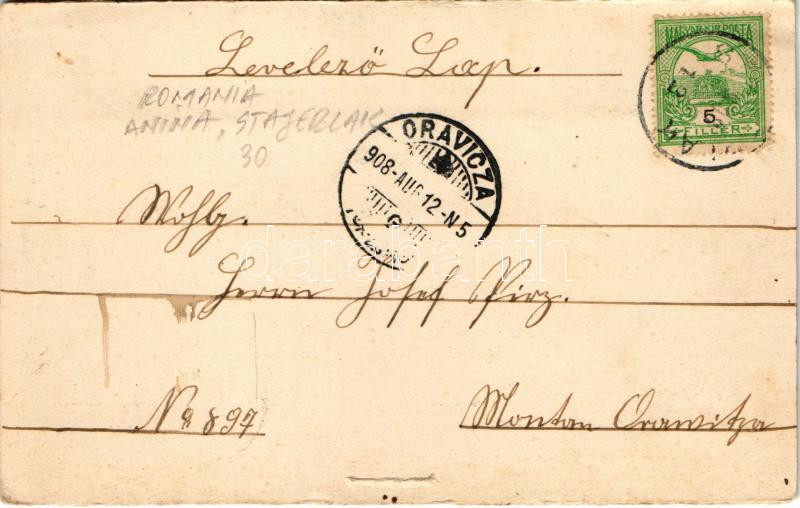 Levelező Lap.
MAGYAR KIR. POSTA
5
FILLER
ROMANIA
ANINA, STAJERLAK
30
ORAVICZA
908-AUG 12-N5
G
Wohlg.
darabanth
Herrn Josef Pirz.
No 897
Montan Orawitza